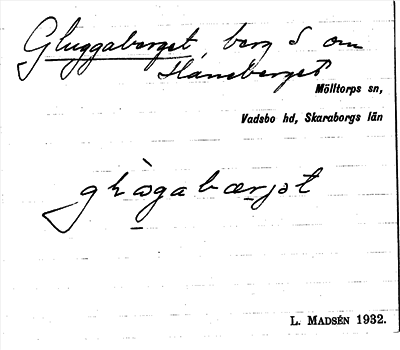 Gluggaberget, berg S om
Hanaberget
Mölltorps sn,
Vadsbo hd, Skaraborgs län
L. MADSÉN 1932.